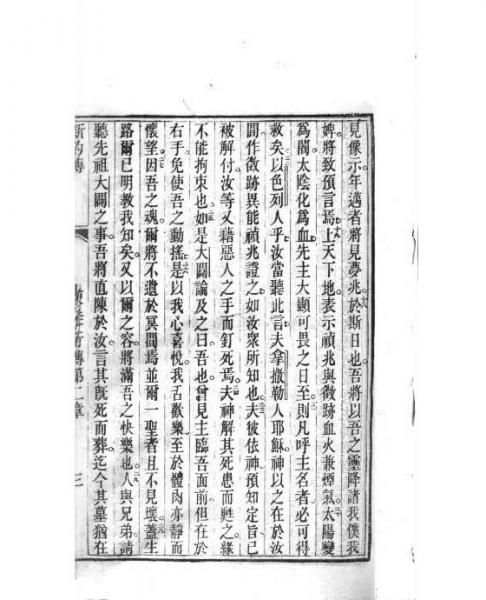 見像示年邁者將見夢兆於斯日也吾將以吾之靈降諸我僕我
婢將致預言焉上天下地表示禎兆與徵跡血火兼煙氣太陽變
為闇太陰化為血先主大顯可畏之日至則凡呼主名者必可得
救矣以色列人乎汝當聽此言夫拿撒勒人耶穌神以之在於汝
間作徵跡異能禎兆證之如汝衆所知也夫彼依神預知定旨已
被解付汝等又藉惡人之手而釘死焉夫神解其死患而甦之緣
不能拘束也如是大闢論及之曰吾也曾見主臨吾面前但在於
右手免使吾之動搖是以我心喜悅我舌歡樂至於體肉亦靜而
懷望因吾之魂爾將不遺於冥間焉並爾一聖者且不見壞蓋生
路爾已明教我知矣又以爾之容將滿吾之快樂也人與兄弟請
聽先祖大闢之事吾將直陳於汝言其旣死而葬迄今其墓猶在
傳第二章
三